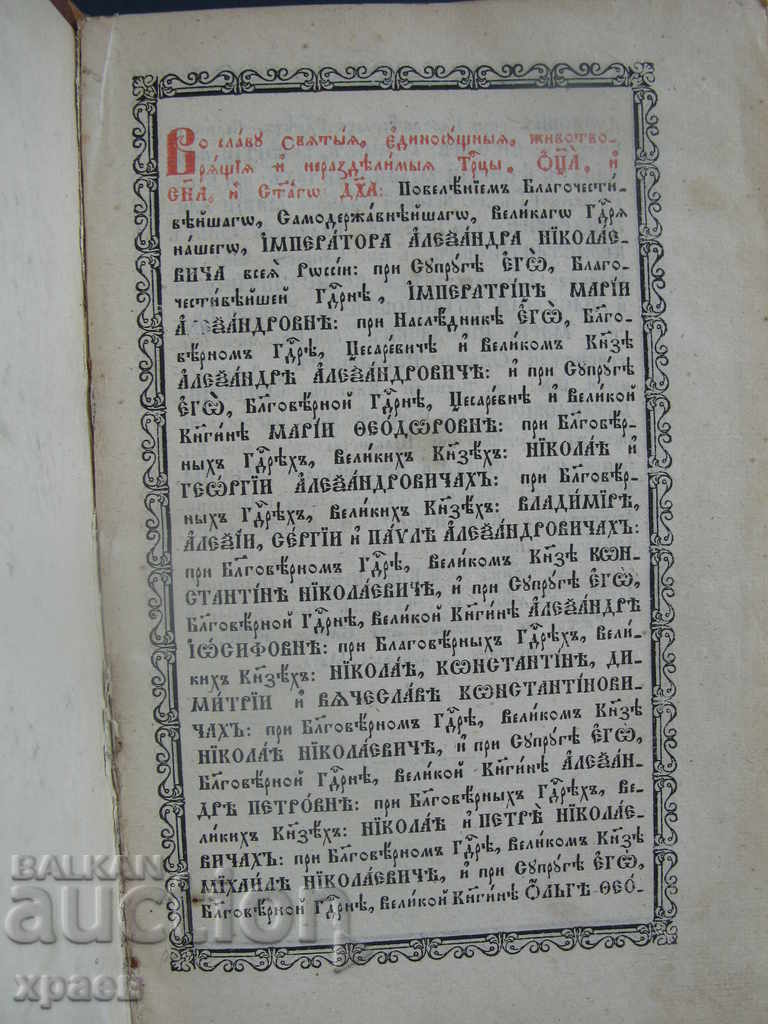 Во славу святыѧ, є҆диносꙋщныѧ, животво-
рѧщїѧ и҆ нераздѣлимыѧ Трⷪ҇цы, Ѻ҆ц҃а̀, и҆
Сн҃а, и҆ Ст҃агѡ Дх҃а: Повелѣ́нїемъ Благочести-
вѣ́йшагѡ, Самодержа́внѣйшагѡ, Великагѡ Гдⷭ҇рѧ
на́шегѡ, І҆МПЕРА́ТОРА А҆ЛЕѮА́НДРА НІКОЛА́Е-
ВИЧА всеѧ̀ Рѡссі́и: при Сꙋпрꙋ́гѣ Є҆ГѠ̀, Благо-
чести́вѣйшей Гдⷭ҇рнѣ, І҆МПЕРАТРІ́ЦѢ МАРІ́И
А҆ЛЕѮА́НДРОВНѢ: при Наслѣ́дникѣ Є҆ГѠ̀, Бл҃го-
вѣ́рномъ Гдⷭ҇рѣ, Цесаре́вичѣ и҆ Вели́комъ Кнѧ́зѣ
А҆ЛЕѮА́НДРѢ А҆ЛЕѮА́НДРОВИЧѢ: и҆ при Сꙋпрꙋ́гѣ
Є҆ГѠ̀, Бл҃говѣ́рной Гдⷭ҇рнѣ, Цесаре́внѣ и҆ Вели́кой
Кнѧги́нѣ МАРІ́И ѲЕО́ДѠРОВНѢ: при Бл҃говѣ́р-
ныхъ Гдⷭ҇рѣхъ, Вели́кихъ Кнѧзѣ́хъ: НІКОЛА́Ѣ и҆
ГЕѠ́РГІИ А҆ЛЕѮА́НДРОВИЧАХЪ: при Бл҃говѣ́р-
ныхъ Гдⷭ҇рѣхъ, Вели́кихъ Кнѧзѣ́хъ: ВЛАДИ́МІРѢ,
А҆ЛЕѮІ́И, СЕ́РГІИ и҆ ПА́ѴЛѢ А҆ЛЕѮА́НДРОВИЧАХЪ:
при Бл҃говѣ́рномъ Гдⷭ҇рѣ, Вели́комъ Кнѧ́зѣ КѠН-
СТАНТІ́НѢ НІКОЛА́ЕВИЧѢ, и҆ при Сꙋпрꙋ́гѣ Є҆ГѠ̀,
Бл҃говѣ́рной Гдⷭ҇рнѣ, Вели́кой Кнѧги́нѣ А҆ЛЕѮА́НДРѢ
І҆Ѡ́СИФОВНѢ: при Благовѣ́рныхъ Гдⷭ҇рѣхъ, Вели́-
кихъ Кнѧзѣ́хъ: НІКОЛА́Ѣ, КѠНСТАНТІ́НѢ, ДИ-
МИ́ТРІИ и҆ ВѦЧЕСЛА́ВѢ КѠНСТАНТІ́НОВИ-
ЧАХЪ: при Бл҃говѣ́рномъ Гдⷭ҇рѣ, Вели́комъ Кнѧ́зѣ
НІКОЛА́Ѣ НІКОЛА́ЕВИЧѢ, и҆ при Сꙋпрꙋ́гѣ Є҆ГѠ̀,
Бл҃говѣ́рной Гдⷭ҇рнѣ, Вели́кой Кнѧги́нѣ А҆ЛЕѮА́Н-
ДРѢ ПЕТРО́ВНѢ: при Бл҃говѣ́рныхъ Гдⷭ҇рѣхъ, Ве-
ли́кихъ Кнѧзѣ́хъ: НІКОЛА́Ѣ и҆ ПЕТРѢ̀ НІКОЛА́Е-
ВИЧАХЪ: при Бл҃говѣ́рномъ Гдⷭ҇рѣ, Вели́комъ Кнѧ́зѣ
МІХАИ́ЛѢ НІКОЛА́ЕВИЧѢ, и҆ при Сꙋпрꙋ́гѣ Є҆ГѠ̀,
Бл҃говѣ́рной Гдⷭ҇рнѣ, Вели́кой Кнѧги́нѣ Ѻ҆́ЛЬГѢ ѲЕО́-
BALKAN
auction
храев